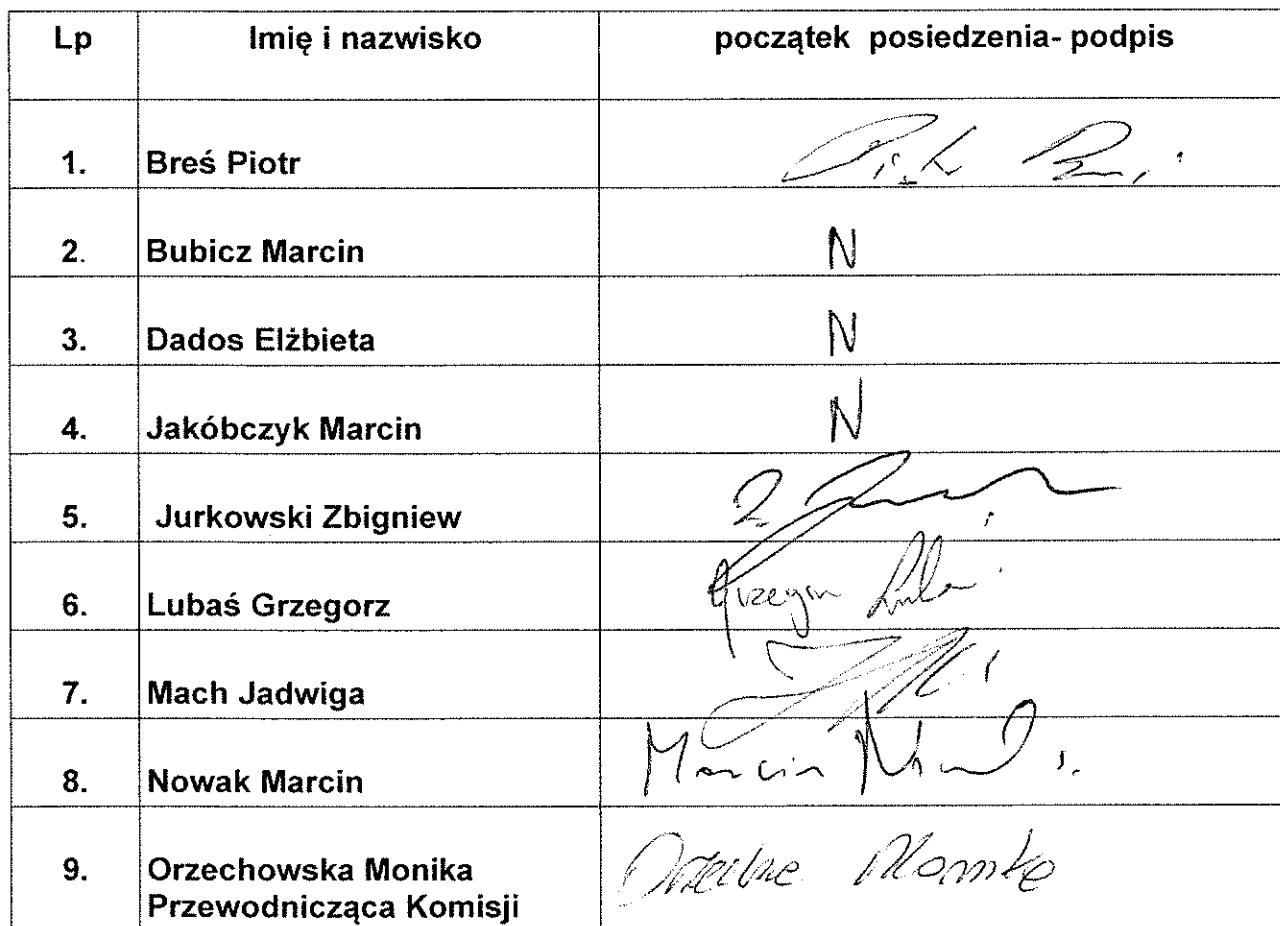 Lp Imię i nazwisko początek posiedzenia- podpis
1. Breś Piotr
2. Bubicz Marcin N
3. Dados Elżbieta N
4. Jakóbczyk Marcin N
5. Jurkowski Zbigniew
6. Lubaś Grzegorz
7. Mach Jadwiga
8. Nowak Marcin Marcin
9. Orzechowska Monika
Przewodnicząca Komisji